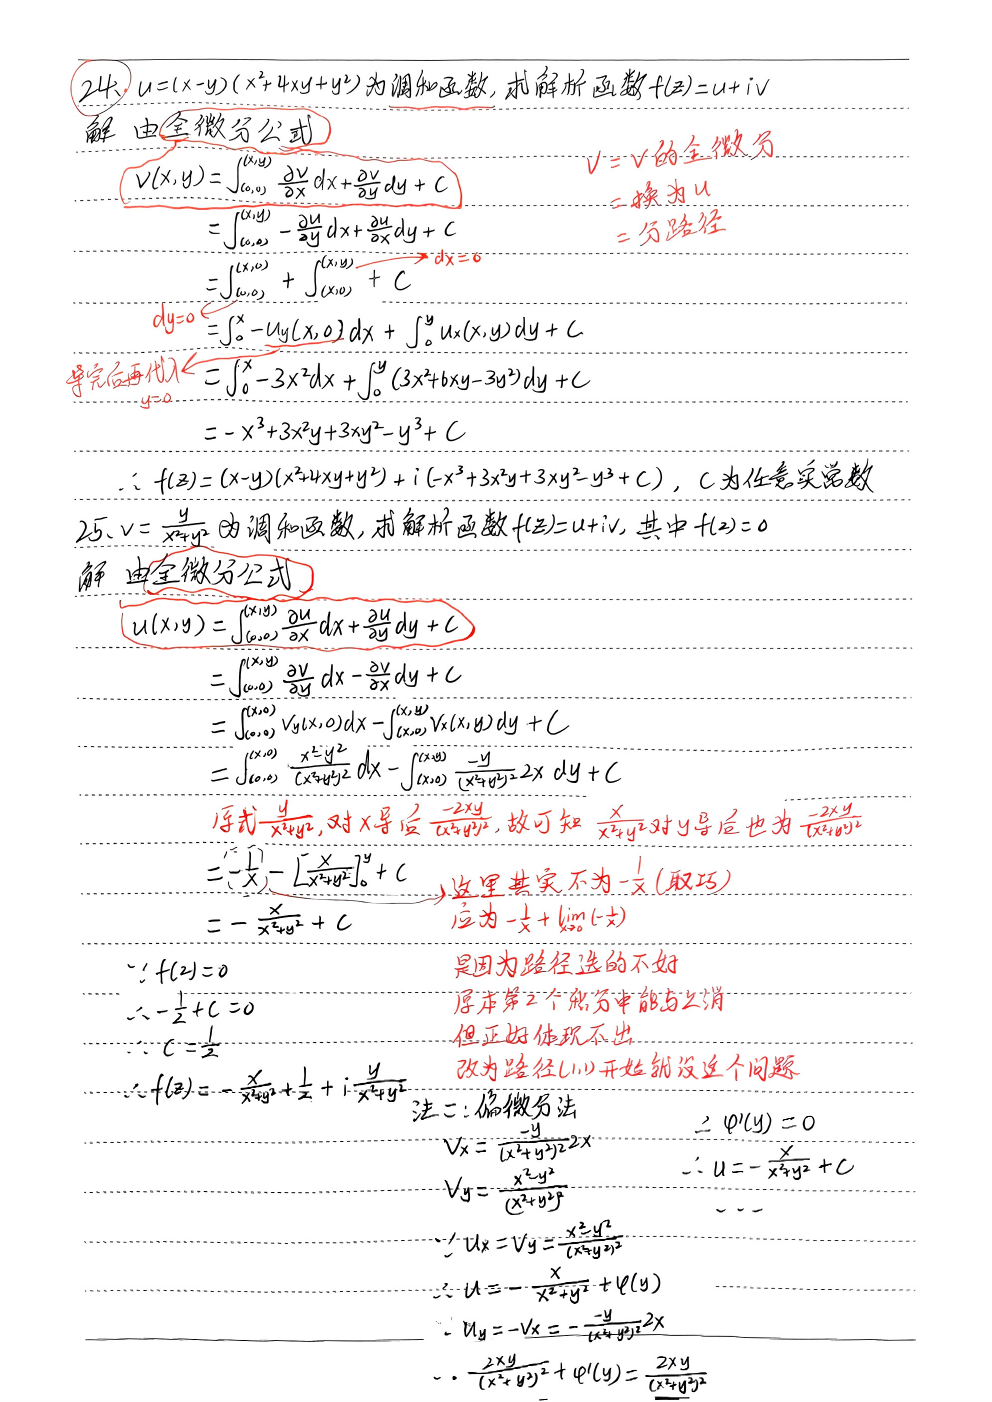 24、u=(x-y)(x²+4xy+y²)为调和函数,求解析函数f(z)=u+iv
解 由全微分公式
v=v的全微分
v(x,y)=∫_(0,0)^(x,y) ∂v/∂x dx+∂v/∂y dy+C
=换为u
=∫_(0,0)^(x,y) -∂u/∂y dx+∂u/∂x dy+C
=分路径
=∫_(0,0)^(x,0) + ∫_(x,0)^(x,y) + C
dx=0
dy=0
=∫_0^x -uy(x,0)dx + ∫_0^y ux(x,y)dy+C
导完后再代入
y=0
=∫_0^x -3x²dx+∫_0^y (3x²+6xy-3y²)dy+C
=-x³+3x²y+3xy²-y³+C
∴ f(z)=(x-y)(x²+4xy+y²)+i(-x³+3x²y+3xy²-y³+C), C为任意实常数
25、v=y/(x²+y²)为调和函数,求解析函数f(z)=u+iv,其中f(2)=0
解 由全微分公式
u(x,y)=∫_(0,0)^(x,y) ∂u/∂x dx+∂u/∂y dy+C
=∫_(0,0)^(x,y) ∂v/∂y dx-∂v/∂x dy+C
=∫_(0,0)^(x,0) Vy(x,0)dx-∫_(x,0)^(x,y) Vx(x,y)dy+C
=∫_(0,0)^(x,0) (x²-y²)/(x²+y²)² dx-∫_(x,0)^(x,y) -y/(x²+y²)² 2x dy+C
原式y/(x²+y²),对x导后-2xy/(x²+y²)²,故可知 x/(x²+y²)对y导后也为-2xy/(x²+y²)²
=-1/x-[x/(x²+y²)]_0^y+C
这里其实不为-1/x(取巧)
应为-1/x+lim_(x→0)(-1/x)
=-x/(x²+y²)+C
是因为路径选的不好
∵f(2)=0
原本第2个积分中能与之消
∴-1/2+C=0
但正好体现不出
∴C=1/2
改为路径(1,1)开始就没这个问题
∴f(z)=-x/(x²+y²)+1/2+i y/(x²+y²)
法二:偏微分法
Vx=-y/(x²+y²)² 2x
Vy=(x²-y²)/(x²+y²)²
∵ux=Vy=(x²-y²)/(x²+y²)²
∴u=-x/(x²+y²)+φ(y)
∵uy=-Vx=--y/(x²+y²)² 2x
∴2xy/(x²+y²)²+φ'(y)=2xy/(x²+y²)²
∴φ'(y)=0
∴u=-x/(x²+y²)+C
---